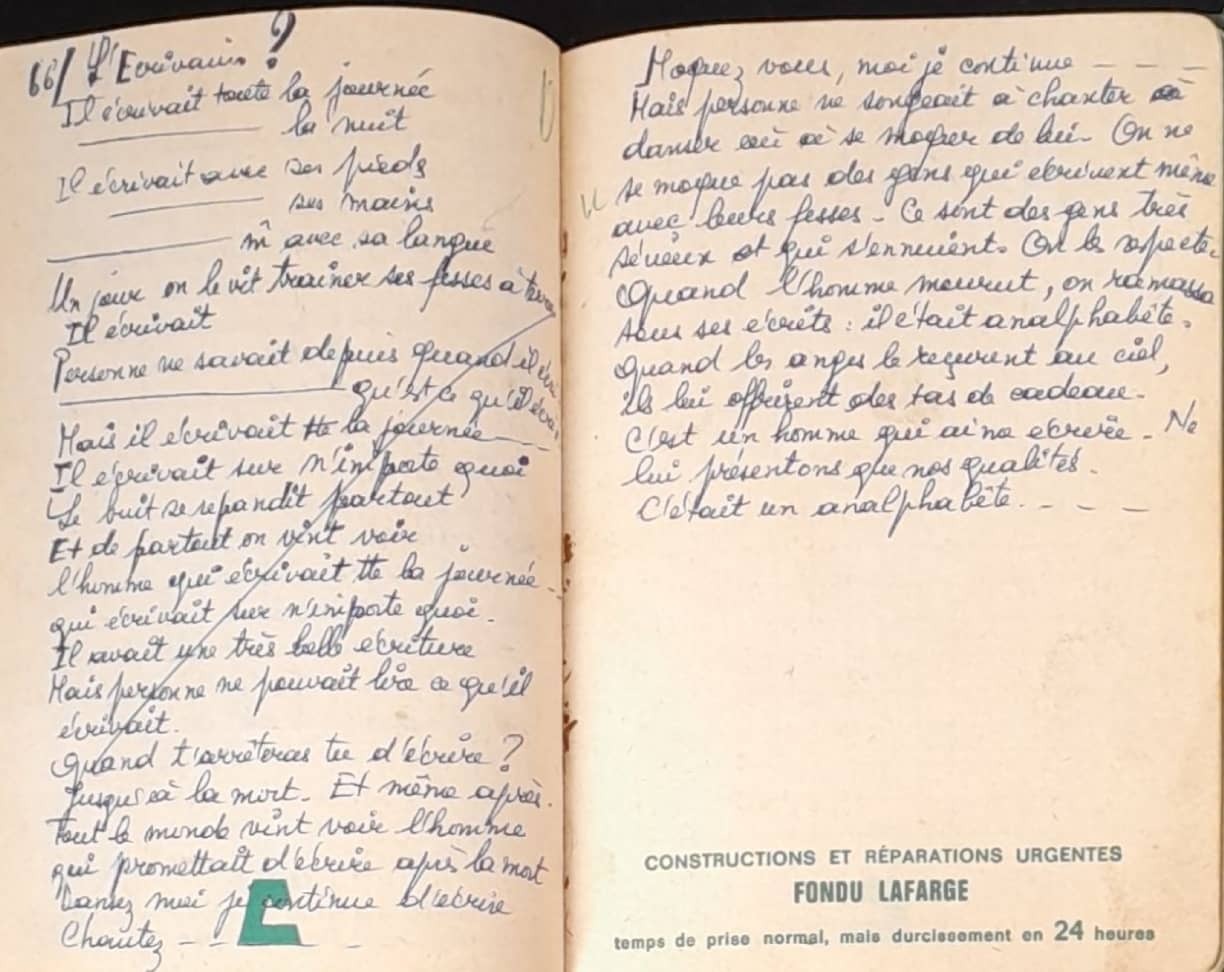 66/ L'Ecrivain ?
Il écrivait toute la journée
________ la nuit
Il écrivait avec ses pieds
________ ses mains
________ m̂ avec sa langue
Un jour on le vit trainer ses fesses à
Il écrivait
Personne ne savait depuis quand il
________ qu'est ce qu'il
Mais il écrivait tte la journée
Il écrivait sur n'importe quoi
Le buit se repandit partout
Et de partout on vint voir
l'homme qui écrivait tte la journée
qui écrivait sur n'importe quoi.
Il avait une très belle ecriture
Mais personne ne pouvait lire ce qu'il
écrivait.
Quand t'arrêteras tu d'écrire ?
Jusqu'à la mort. Et même après.
Tout le monde vint voir l'homme
qui promettait d'écrire après la mort
Dansez moi je continue d'écrire
Chantez - - -
Moquez vous, moi je continue - - - -
Mais personne ne songeait à chanter
danser à se moquer de lui. On ne
se moque pas des gens qui écrivent même
avec leurs fesses. Ce sont des gens très
sérieux et qui s'ennuient. On les respecte.
Quand l'homme mourut, on ramassa
tous ses écrits : il était analphabète.
Quand les anges le reçurent au ciel,
ils lui offrirent des tas de cadeau.
C'est un homme qui aima écrire. Ne
lui présentons que nos qualités.
C'était un analphabète. - - -
CONSTRUCTIONS ET RÉPARATIONS URGENTES
FONDU LAFARGE
temps de prise normal, mais durcissement en 24 heures